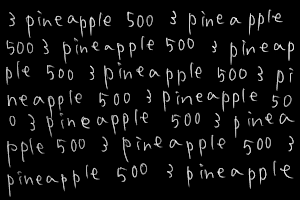 3 pineapple 500 3 pineapple
500 3 pineapple 500 3 pineap
ple 500 3 pineapple 500 3 pi
neapple 500 3 pineapple 50
0 3 pineapple 500 3 pinea
pple 500 3 pineapple 500 3
pineapple 500 3 pineapple